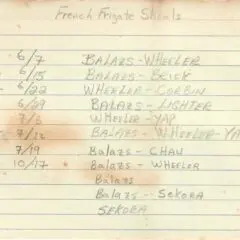 French Frigate Shoals
6/7 BALAZS-WHEELER
6/15 BALAZS-BRICK
6/22 WHEELER-CORBIN
6/29 BALAZS-LIGHTER
7/3 WHEELER-YAP
7/12 BALAZS-WHEELER-YAP
7/19 BALAZS-CHAN
10/17 BALAZS-WHEELER
BALAZS
BALAZS-SEKORA
SEKORA